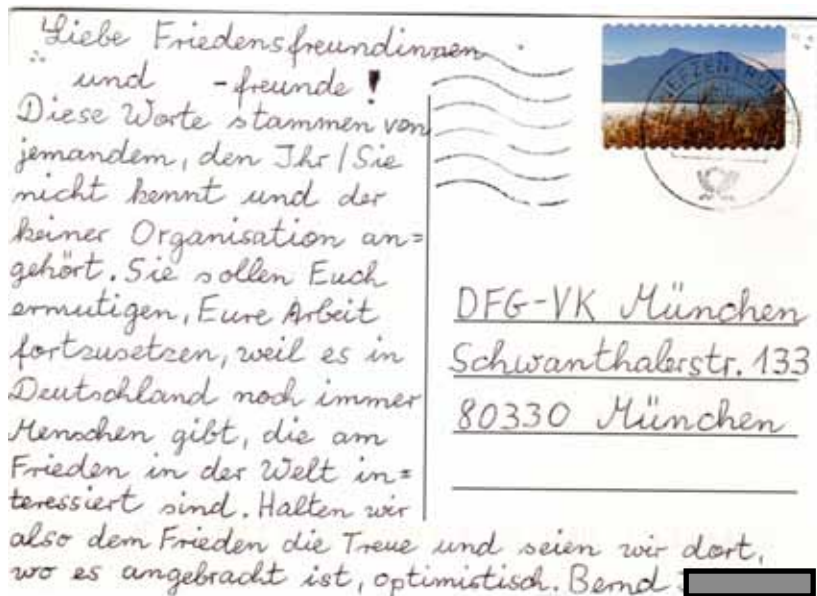 Liebe Friedensfreundinnen
und -freunde!
Diese Worte stammen von
jemandem, den Ihr/Sie
nicht kennt und der
keiner Organisation an=
gehört. Sie sollen Euch
ermutigen, Eure Arbeit
fortzusetzen, weil es in
Deutschland noch immer
Menschen gibt, die am
Frieden in der Welt in=
teressiert sind. Halten wir
also dem Frieden die Treue und seien wir dort,
wo es angebracht ist, optimistisch. Bernd
DFG-VK München
Schwanthalerstr. 133
80330 München